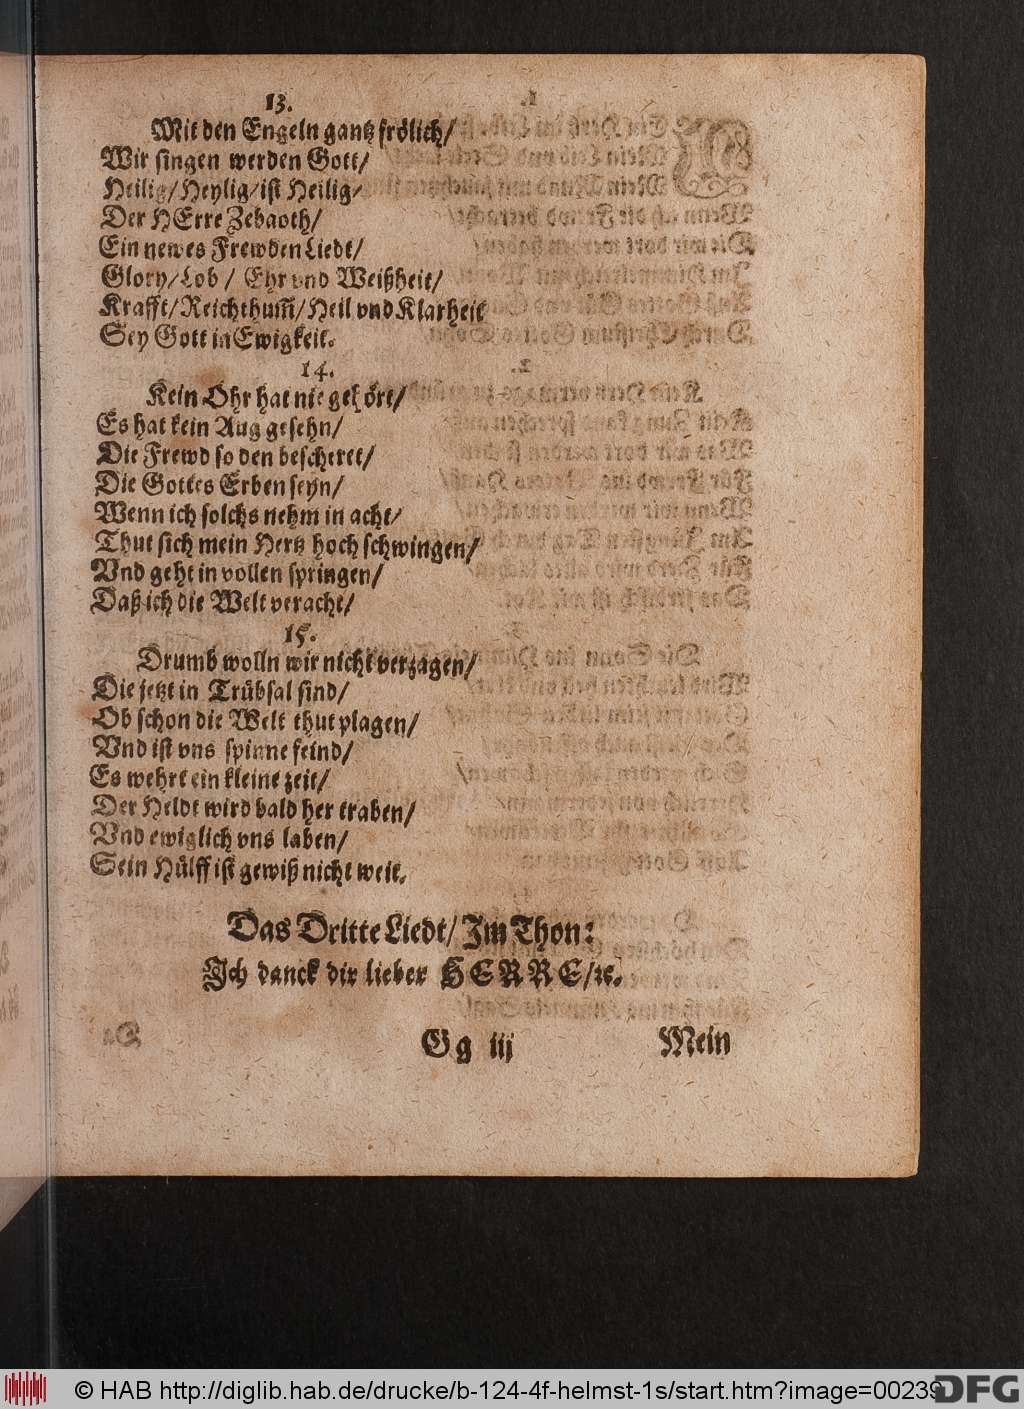 13.
Mit den Engeln gantz frölich/
Wir singen werden Gott/
Heilig/Heylig/ist Heilig/
Der HErre Zebaoth/
Ein newes Frewden Liedt/
Glory/Lob / Ehr vnd Weißheit/
Krafft/Reichthum̃/Heil vnd Klarheit
Sey Gott in Ewigkeit.
14.
Kein Ohr hat nie gehört/
Es hat kein Aug gesehn/
Die Frewd so den bescheret/
Die Gottes Erben seyn/
Wenn ich solchs nehm in acht/
Thut sich mein Hertz hoch schwingen/
Vnd geht in vollen springen/
Daß ich die Welt veracht/
15.
Drumb wolln wir nicht verzagen/
Die jetzt in Trübsal sind/
Ob schon die Welt thut plagen/
Vnd ist vns spinne feind/
Es wehrt ein kleine zeit/
Der Heldt wird bald her traben/
Vnd ewiglich vns laben/
Sein Hülff ist gewiß nicht weit.
Das Dritte Liedt/ Im Thon:
Ich danck dir lieber HERRE/ꝛc.
Gg iij Mein
© HAB http://diglib.hab.de/drucke/b-124-4f-helmst-1s/start.htm?image=00239
DFG